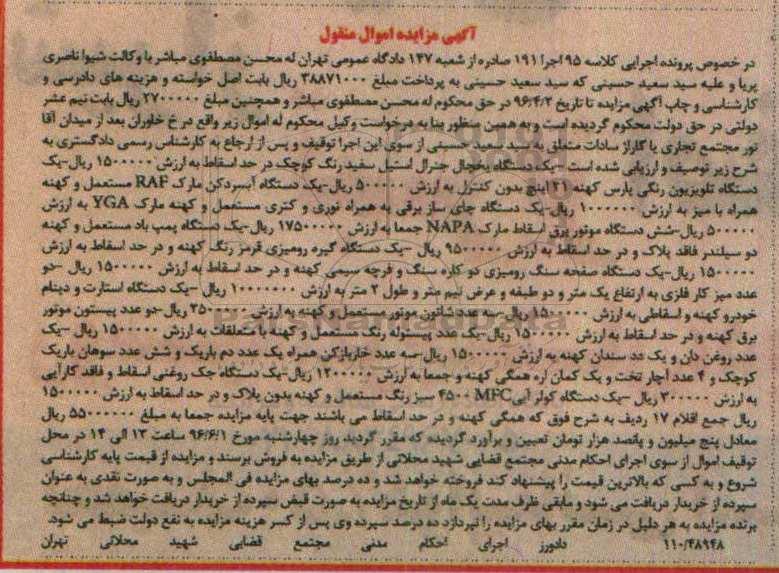 آگهی مزایده اموال منقول
در خصوص پرونده اجرایی کلاسه ۹۵ اجرا ۱۹۱ صادره از شعبه ۱۴۷ دادگاه عمومی تهران له محسن مصطفوی مباشر با وکالت شیوا ناصری
پریا و علیه سید سعید حسینی که سید سعید حسینی به پرداخت مبلغ ۳۸۸۷۱۰۰۰ ریال بابت اصل خواسته و هزینه های دادرسی و
کارشناسی و چاپ آگهی مزایده تا تاریخ ۹۶/۴/۲ در حق محکوم له محسن مصطفوی مباشر و همچنین مبلغ ۲۷۰۰۰۰۰ ریال بابت نیم عشر
دولتی در حق دولت محکوم گردیده است و به همین منظور بنا به درخواست وکیل محکوم له اموال زیر واقع در خ خاوران بعد از میدان آقا
نور مجتمع تجاری یا گاراژ سادات متعلق به سید سعید حسینی از سوی این اجرا توقیف و پس از ارجاع به کارشناس رسمی دادگستری به
شرح زیر توصیف و ارزیابی شده است -یک دستگاه یخچال جنرال استیل سفید رنگ کوچک در حد اسقاط به ارزش ۱۵۰۰۰۰۰ ریال-یک
دستگاه تلویزیون رنگی پارس کهنه ۲۱ اینچ بدون کنترل به ارزش ۵۰۰۰۰۰ ریال-یک دستگاه آبسردکن مارک RAF مستعمل و کهنه
همراه با میز به ارزش ۱۰۰۰۰۰۰ ریال-یک دستگاه چای ساز برقی به همراه توری و کتری مستعمل و کهنه مارک YGA به ارزش
۵۰۰۰۰۰ ریال-شش دستگاه موتور برق اسقاط مارک NAPA جمعا به ارزش ۱۷۵۰۰۰۰۰ ریال-یک دستگاه پمپ باد مستعمل و کهنه
دو سیلندر فاقد پلاک و در حد اسقاط به ارزش ۹۵۰۰۰۰۰ ریال -یک دستگاه گیره رومیزی قرمز رنگ کهنه و در حد اسقاط به ارزش
۱۵۰۰۰۰۰ ریال-یک دستگاه صفحه سنگ رومیزی دو کاره سنگ و فرچه سیمی کهنه و در حد اسقاط به ارزش ۱۵۰۰۰۰۰ ریال -دو
عدد میز کار فلزی به ارتفاع یک متر و دو طبقه و عرض نیم متر و طول ۲ متر به ارزش ۱۰۰۰۰۰۰۰ ریال -یک دستگاه استارت و دینام
خودرو کهنه و اسقاطی به ارزش ۱۵۰۰۰۰۰ ریال-سه عدد شاتون موتور مستعمل و کهنه به ارزش ریال-دو عدد پیستون موتور
برق کهنه و در حد اسقاط به ارزش ۱۵۰۰۰۰۰ ریال-یک عدد پیستوله رنگ مستعمل و کهنه با متعلقات به ارزش ۱۵۰۰۰۰۰ ریال -یک
عدد روغن دان و یک عدد سندان کهنه به ارزش ۱۵۰۰۰۰۰ ریال-سه عدد خاربازکن همراه یک عدد دم باریک و شش عدد سوهان باریک
کوچک و ۴ عدد آچار تخت و یک کمان اره همگی کهنه و جمعا به ارزش ۱۲۰۰۰۰۰ ریال-یک دستگاه جک روغنی اسقاط و فاقد کارآیی
به ارزش ۳۰۰۰۰۰ ریال -یک دستگاه کولر آبی ۴۵۰۰ MFC سبز رنگ مستعمل و کهنه بدون پلاک و در حد اسقاط به ارزش ۱۵۰۰۰۰۰
ریال جمع اقلام ۱۷ ردیف به شرح فوق که همگی کهنه و در حد اسقاط می باشند جهت پایه مزایده جمعا به مبلغ ۵۵۰۰۰۰۰۰ ریال
معادل پنج میلیون و پانصد هزار تومان تعیین و برآورد گردیده که مقرر گردید روز چهارشنبه مورخ ۹۶/۶/۱ ساعت ۱۳ الی ۱۴ در محل
توقیف اموال از سوی اجرای احکام مدنی مجتمع قضایی شهید محلاتی از طریق مزایده به فروش برسند و مزایده از قیمت پایه کارشناسی
شروع و به کسی که بالاترین قیمت را پیشنهاد کند فروخته خواهد شد و ده درصد بهای مزایده فی المجلس و به صورت نقدی به عنوان
سپرده از خریدار دریافت می شود و مابقی ظرف مدت یک ماه از تاریخ مزایده به صورت قبض سپرده از خریدار دریافت خواهد شد و چنانچه
برنده مزایده به هر دلیل در زمان مقرر بهای مزایده را نپردازد ده درصد سپرده وی پس از کسر هزینه مزایده به نفع دولت ضبط می شود.
۱۱۰/۴۸۹۴۸ دادورز اجرای احکام مدنی مجتمع قضایی شهید محلاتی تهران